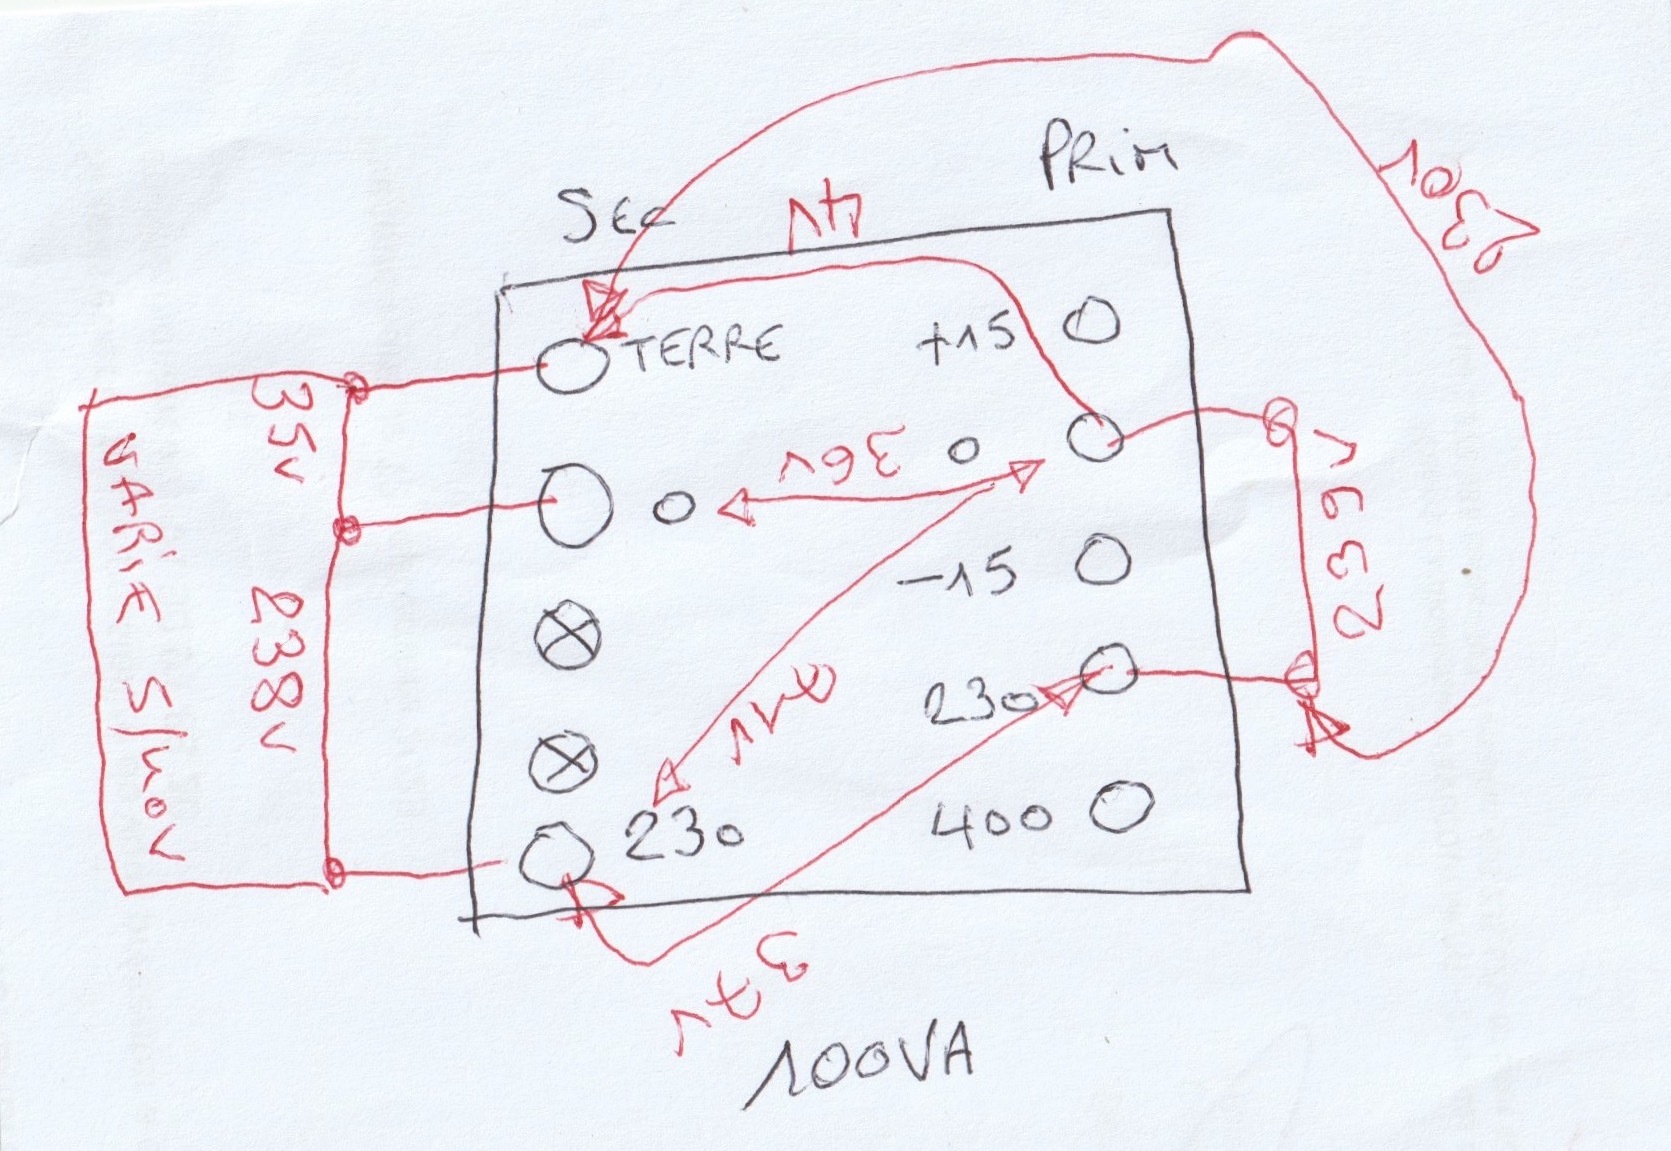 PRiM
SEC
4V
230V
TERRE
+15
35V
36V
0
0
239V
VARIE S/40V
-15
238V
230
230
400
37V
100VA